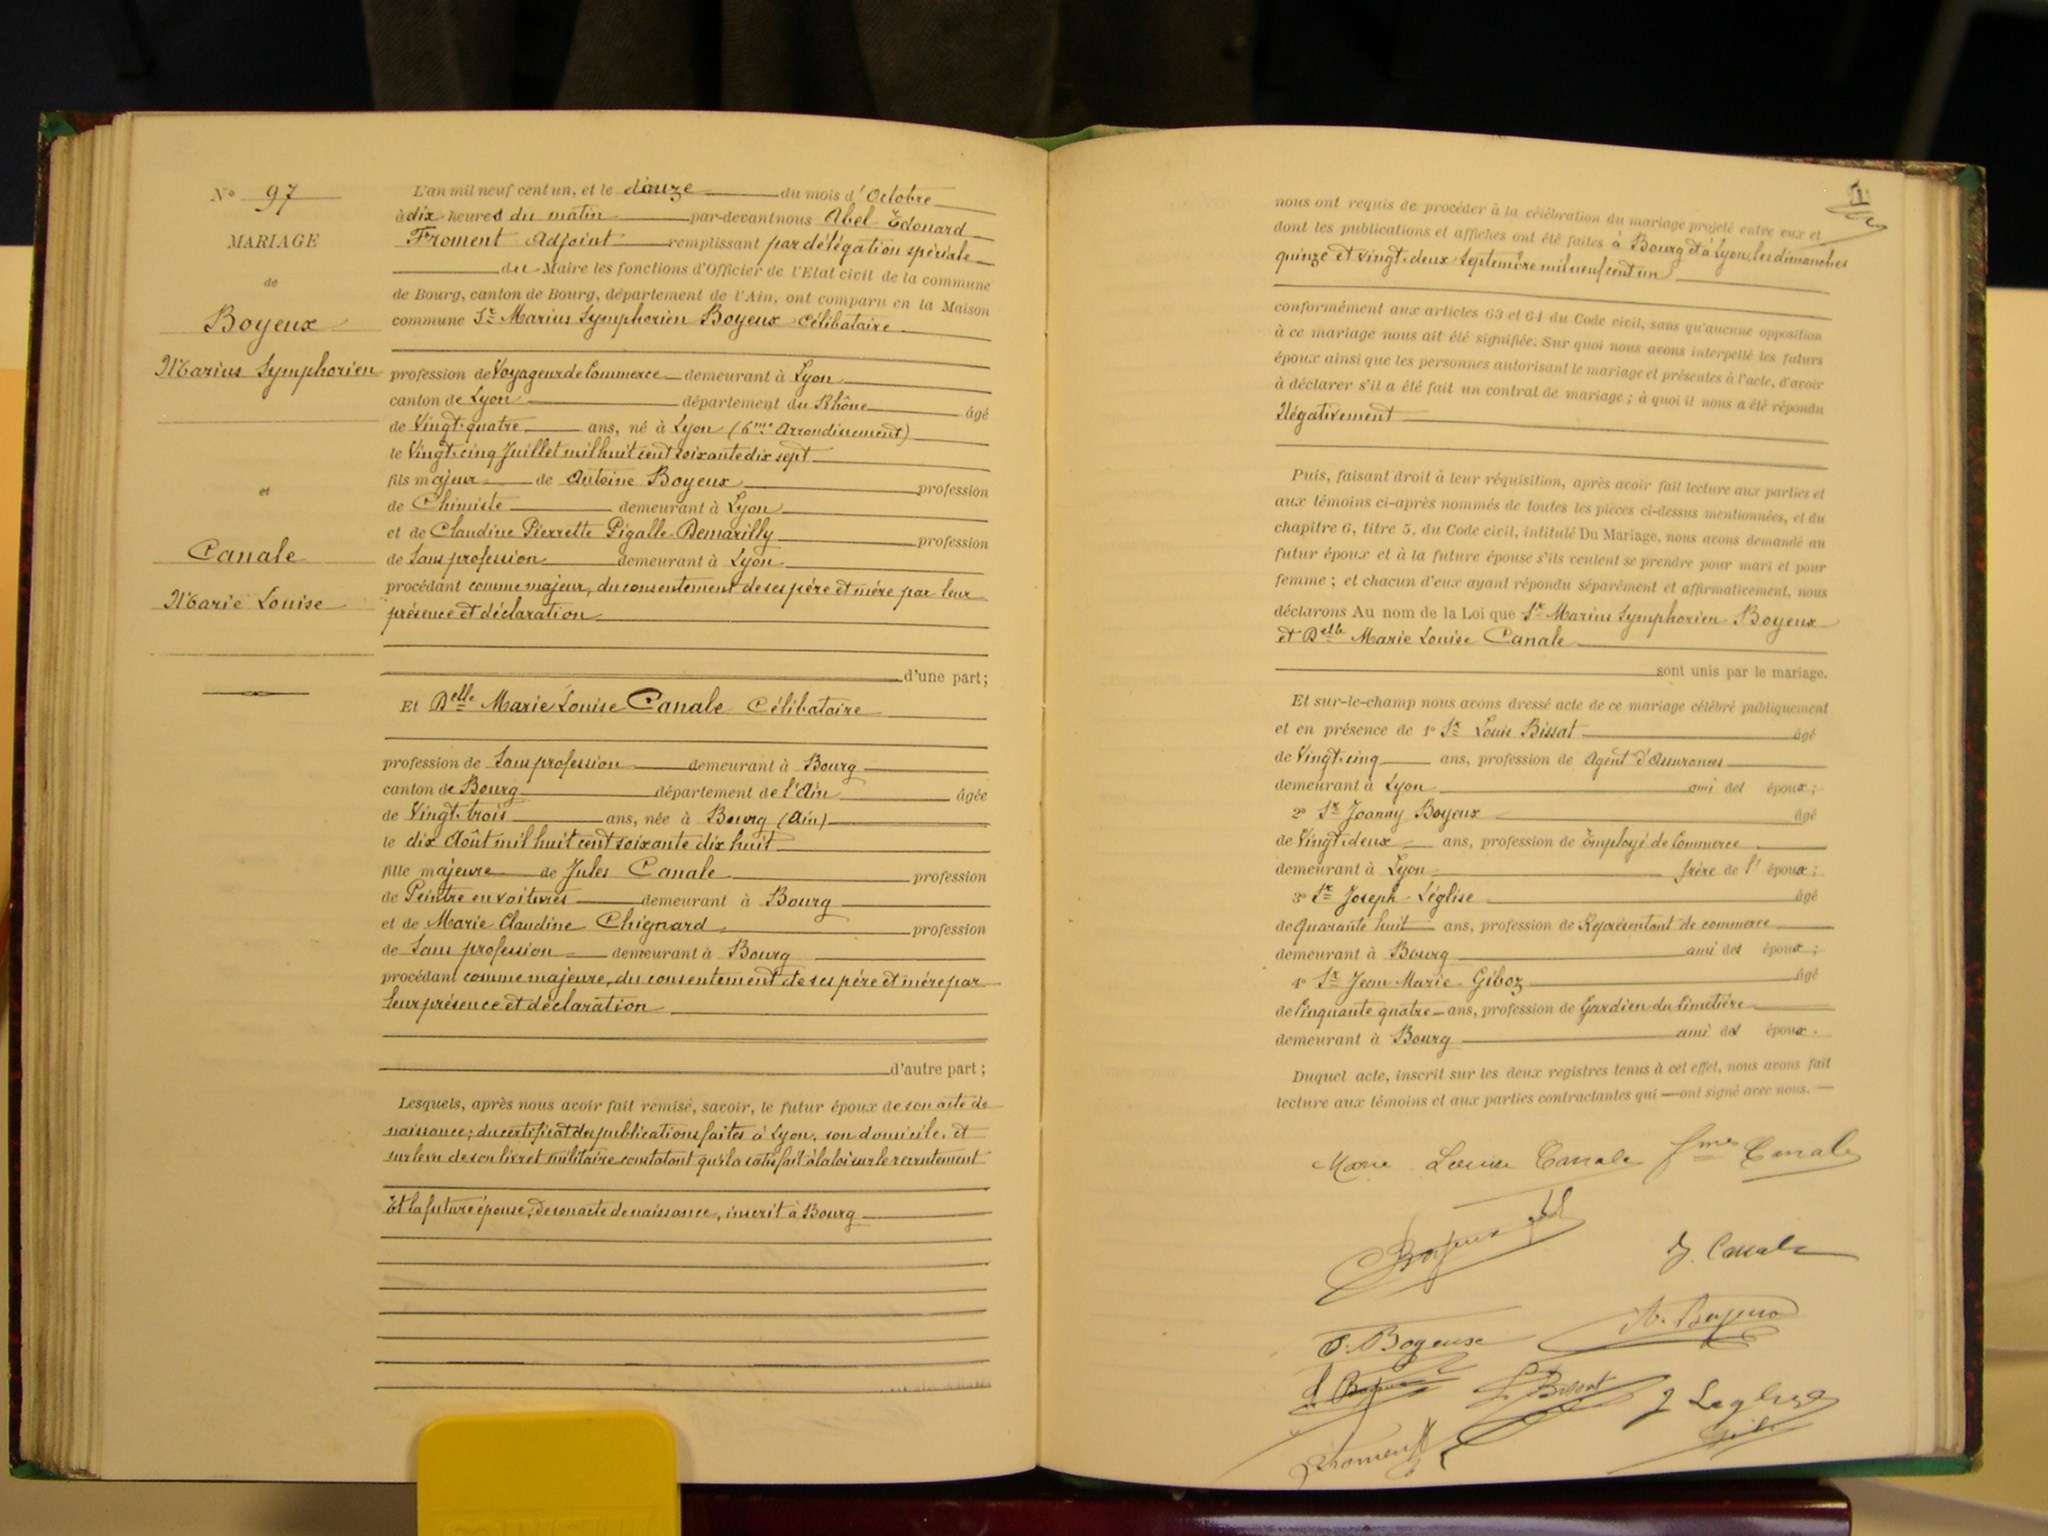 N° 97
MARIAGE
de
Boyeux
Marius Symphorien
et
Canale
Marie Louise
L'an mil neuf cent un, et le douze du mois d'Octobre
à dix heures du matin par-devant nous Abel Edouard
Froment Adjoint remplissant par délégation spéciale
du Maire les fonctions d'Officier de l'Etat civil de la commune
de Bourg, canton de Bourg, département de l'Ain, ont comparu en la Maison
commune Sr Marius Symphorien Boyeux célibataire
profession de Voyageur de Commerce demeurant à Lyon
canton de Lyon département du Rhône âgé
de Vingt-quatre ans, né à Lyon (6me Arrondissement)
le Vingt-cinq Juillet mil huit cent soixante dix sept
fils majeur de Antoine Boyeux profession
de Chimiste demeurant à Lyon
et de Claudine Pierrette Pigalle-Demarilly profession
de Sans profession demeurant à Lyon
procédant comme majeur, du consentement de ses père et mère par leur
présence et déclaration
d'une part;
Et Delle Marie Louise Canale Célibataire
profession de Sans profession demeurant à Bourg
canton de Bourg département de l'Ain âgée
de Vingt-trois ans, née à Bourg (Ain)
le dix Août mil huit cent soixante dix huit
fille majeure de Jules Canale profession
de Peintre en voitures demeurant à Bourg
et de Marie Claudine Chignard profession
de Sans profession demeurant à Bourg
procédant comme majeure, du consentement de ses père et mère par
leur présence et déclaration
d'autre part;
Lesquels, après nous avoir fait remise, savoir, le futur époux de son acte de
naissance; du certificat des publications faites à Lyon, son domicile, et
sur le vu de son livret militaire constatant qu'il a satisfait à la loi sur le recrutement
Et la future épouse, de son acte de naissance, inscrit à Bourg
nous ont requis de procéder à la célébration du mariage projeté entre eux et
dont les publications et affiches ont été faites à Bourg et à Lyon, les dimanches
quinze et vingt-deux Septembre mil neuf cent un
conformément aux articles 63 et 64 du Code civil, sans qu'aucune opposition
à ce mariage nous ait été signifiée. Sur quoi nous avons interpellé les futurs
époux ainsi que les personnes autorisant le mariage et présentes à l'acte, d'avoir
à déclarer s'il a été fait un contrat de mariage; à quoi il nous a été répondu
Négativement
Puis, faisant droit à leur réquisition, après avoir fait lecture aux parties et
aux témoins ci-après nommés de toutes les pièces ci-dessus mentionnées, et du
chapitre 6, titre 5, du Code civil, intitulé Du Mariage, nous avons demandé au
futur époux et à la future épouse s'ils veulent se prendre pour mari et pour
femme; et chacun d'eux ayant répondu séparément et affirmativement, nous
déclarons Au nom de la Loi que Sr Marius Symphorien Boyeux
et Delle Marie Louise Canale
sont unis par le mariage.
Et sur-le-champ nous avons dressé acte de ce mariage célébré publiquement
et en présence de 1° Sr Louis Bissat âgé
de Vingt-cinq ans, profession de Agent d'Assurances
demeurant à Lyon ami des époux;
2° Sr Joanny Boyeux âgé
de Vingt-deux ans, profession de Employé de Commerce
demeurant à Lyon frère de l'époux;
3° Sr Joseph Léglise âgé
de Quarante huit ans, profession de Représentant de commerce
demeurant à Bourg ami des époux;
4° Sr Jean-Marie Giboz âgé
de Cinquante quatre ans, profession de Gardien du Cimetière
demeurant à Bourg ami des époux.
Duquel acte, inscrit sur les deux registres tenus à cet effet, nous avons fait
lecture aux témoins et aux parties contractantes qui ont signé avec nous.
Marie Louise Canale fme Canale
Boyeux
J. Canale
Boyeux
Boyeux
Bissat J Leglise
Froment